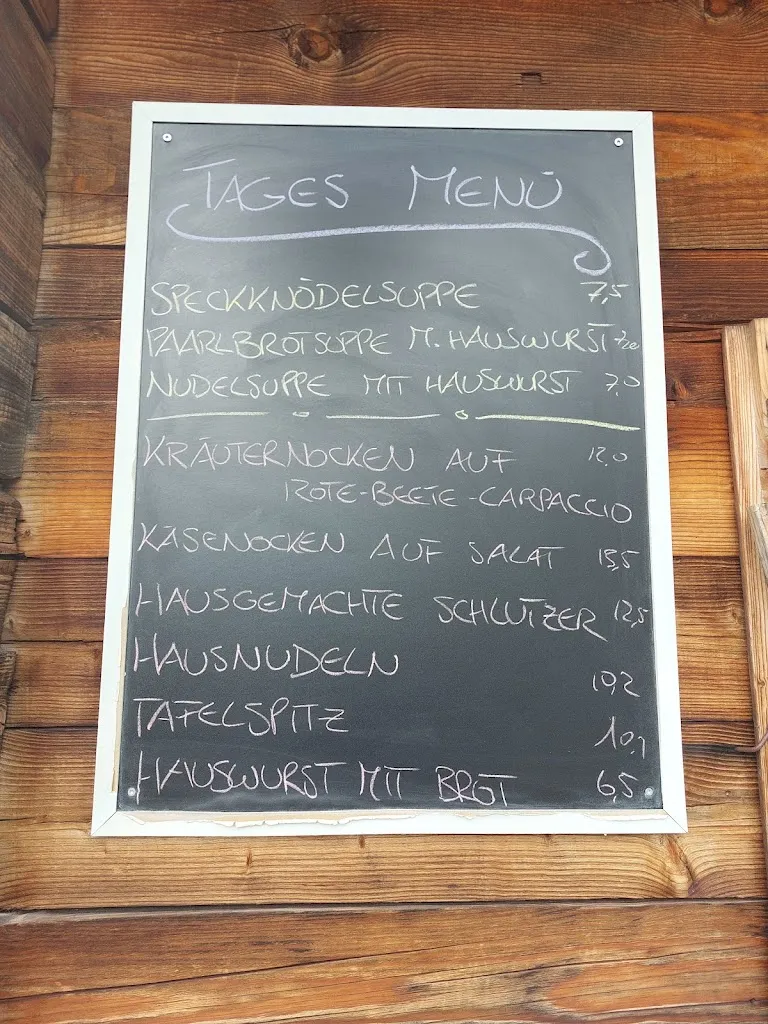 TAGES MENÜ
SPECKKNÖDELSUPPE 7,5
PAARLBROTSUPPE M. HAUSWURST
NUDELSUPPE MIT HAUSWURST 7,0
KRÄUTERNOCKEN AUF 12,0
ROTE-BEETE-CARPACCIO
KÄSENOCKEN AUF SALAT 13,5
HAUSGEMACHTE SCHLUTZER 12,5
HAUSNUDELN
10,2
TAFELSPITZ
HAUSWURST MIT BROT 6,5